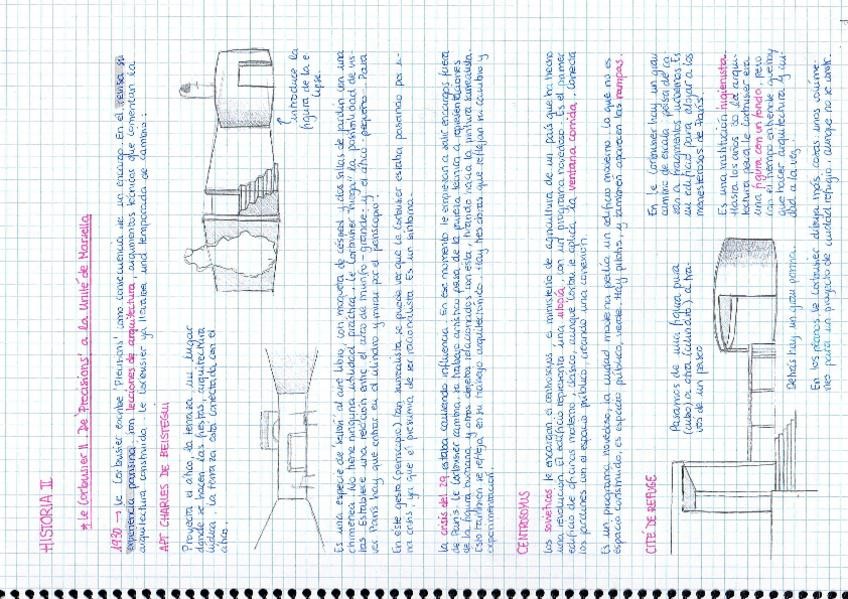 HISTORIA II
* Le Corbusier II. De 'Precisions' a la Unité de Marsella
1930 → Le Corbusier escribe 'Precisions' como consecuencia de un encargo. En él revisa su
experiencia parisina: son lecciones de arquitectura, argumentos teóricos que comentan la
arquitectura construida. Le Corbusier ya llevaba una temporada de cambio:
APT. CHARLES DE BEISTEGUI
Proyecta el ático, la terraza un lugar
donde se hacen las fiestas, arquitectura
lúdica. La terraza está conectada con el
ático.
Introduce la
figura de la e
lipse.
Es una especie de 'salón' al aire libre, con moqueta de césped y dos sillas de jardín con una
chimenea. No tiene ninguna utilidad práctica. Le Corbusier "niega" la posibilidad de vis-
tas. Establece una relación entre el arco de triunfo -grande- y el ático -pequeño-. Para
ver París hay que entrar en el cilindro y mirar por el periscopio.
En este gesto (periscopio) tan surrealista se puede ver que Le Corbusier estaba pasando por u-
na crisis, ya que él presumía de ser racionalista. Es un síntoma.
La crisis del 29 estaba causando influencia. En ese momento le empiezan a salir encargos fuera
de París. Le Corbusier cambia, su trabajo artístico pasa de la pureza blanca a representaciones
de la figura humana y otros objetos relacionados con esta, tirando hacia la pintura surrealista.
Esto también se refleja en su trabajo arquitectónico. Hay tres obras que reflejan su cambio y
experimentación.
CENTROSOYUS
Los soviéticos le encargan el centrosoyus, el ministerio de agricultura de un país que ha hecho
una revolución. El edificio representa una utopía, con un programa novedoso. Es el primer
edificio de oficinas moderno, clásico, aunque Corbu le aplica la ventana corrida. Conecta
los jardines con el espacio público, creando una conexión.
Es un programa novedoso, la ciudad moderna pedía un edificio moderno. Lo que no es
espacio construido, es espacio público, verde. Hay pilotis, y también aparecen las rampas.
CITÉ DE REFUGE
Pasamos de una figura pura
(cubo) a otra (cilindro) a tra-
vés de un paseo
En Le Corbusier hay un gran
cambio de escala: pasa de ca-
sas a fragmentos urbanos. Es
un edificio para alojar a los
menesterosos de París.
Es una institución higienista.
Hasta los años 30 la arqui-
tectura para Le Corbusier era
una figura con un fondo, pero
con el tiempo entiende que hay
que hacer arquitectura y ciu
dad a la vez.
Detrás hay un gran prisma.
En los planos Le Corbusier dibuja más cosas, unos volúme-
nes para un proyecto de ciudad refugio, aunque no se constr.